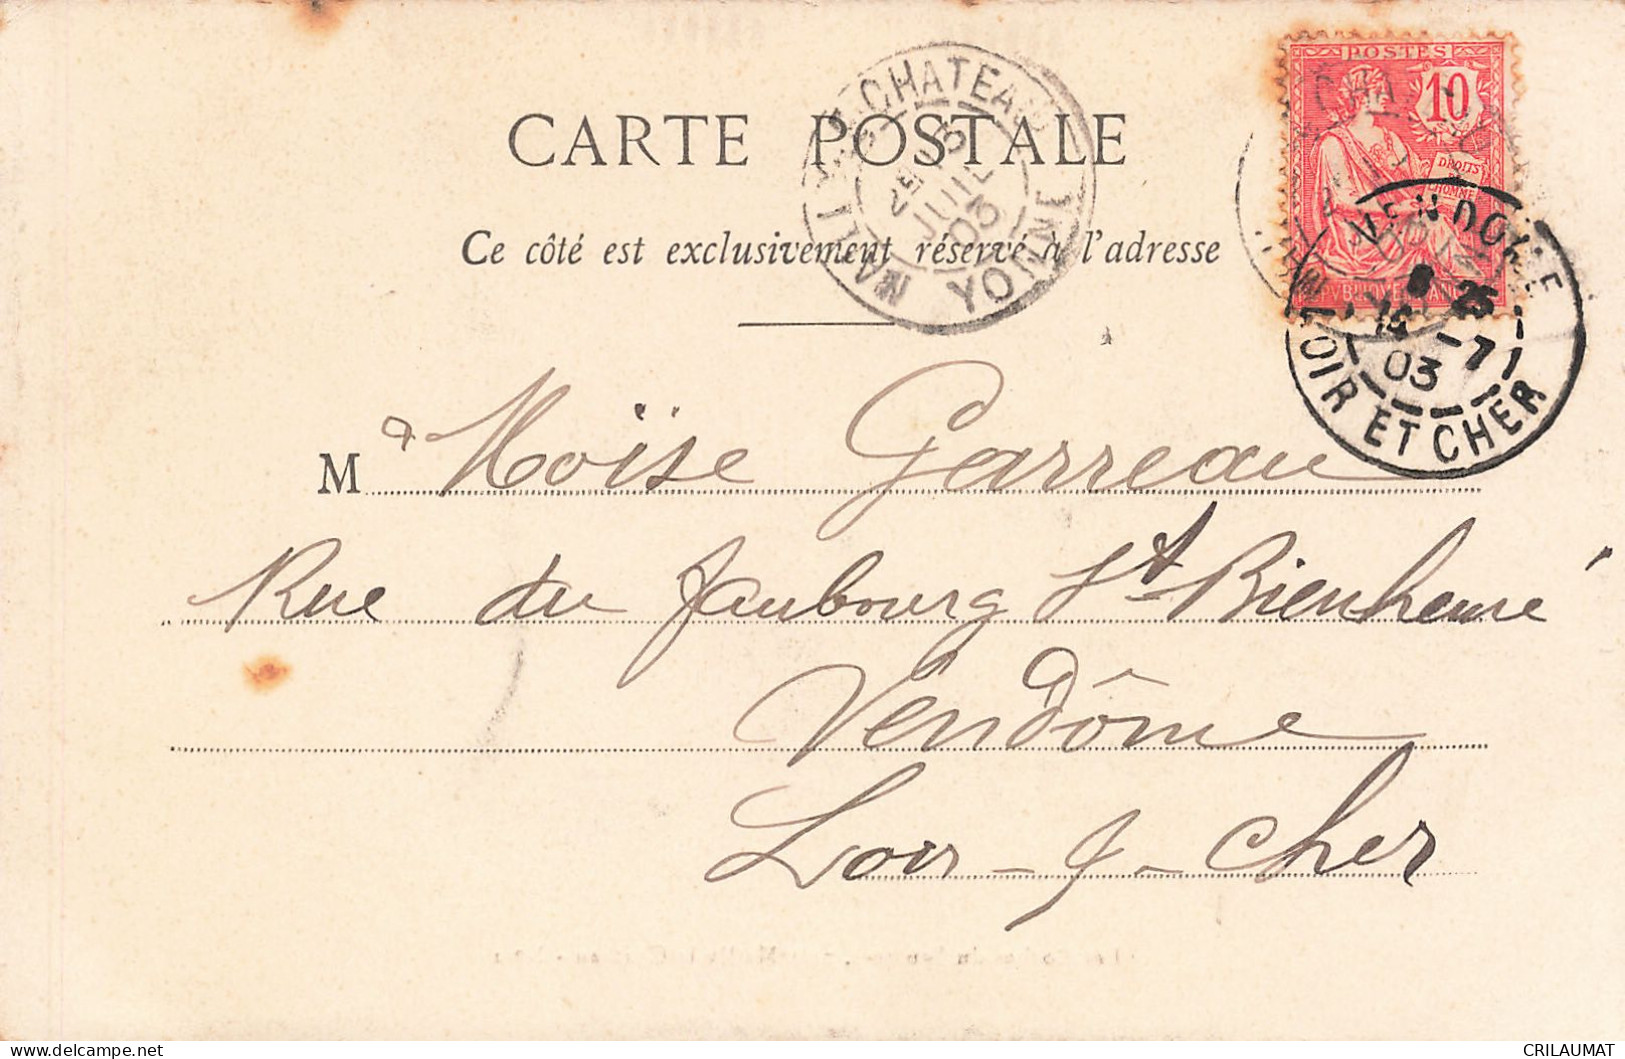 CARTE POSTALE
Ce côté est exclusivement réservé à l'adresse
MAILLY-LE-CHATEAU
15
JUIL
03
YONNE
POSTES
10
DROITS
DE
L'HOMME
VENDOME
8 25
16 -7
03
LOIR ET CHER
M Moïse Garreau
Rue du Faubourg St Bienheuré
Vendôme
Loir-&-Cher
CRILAUMAT